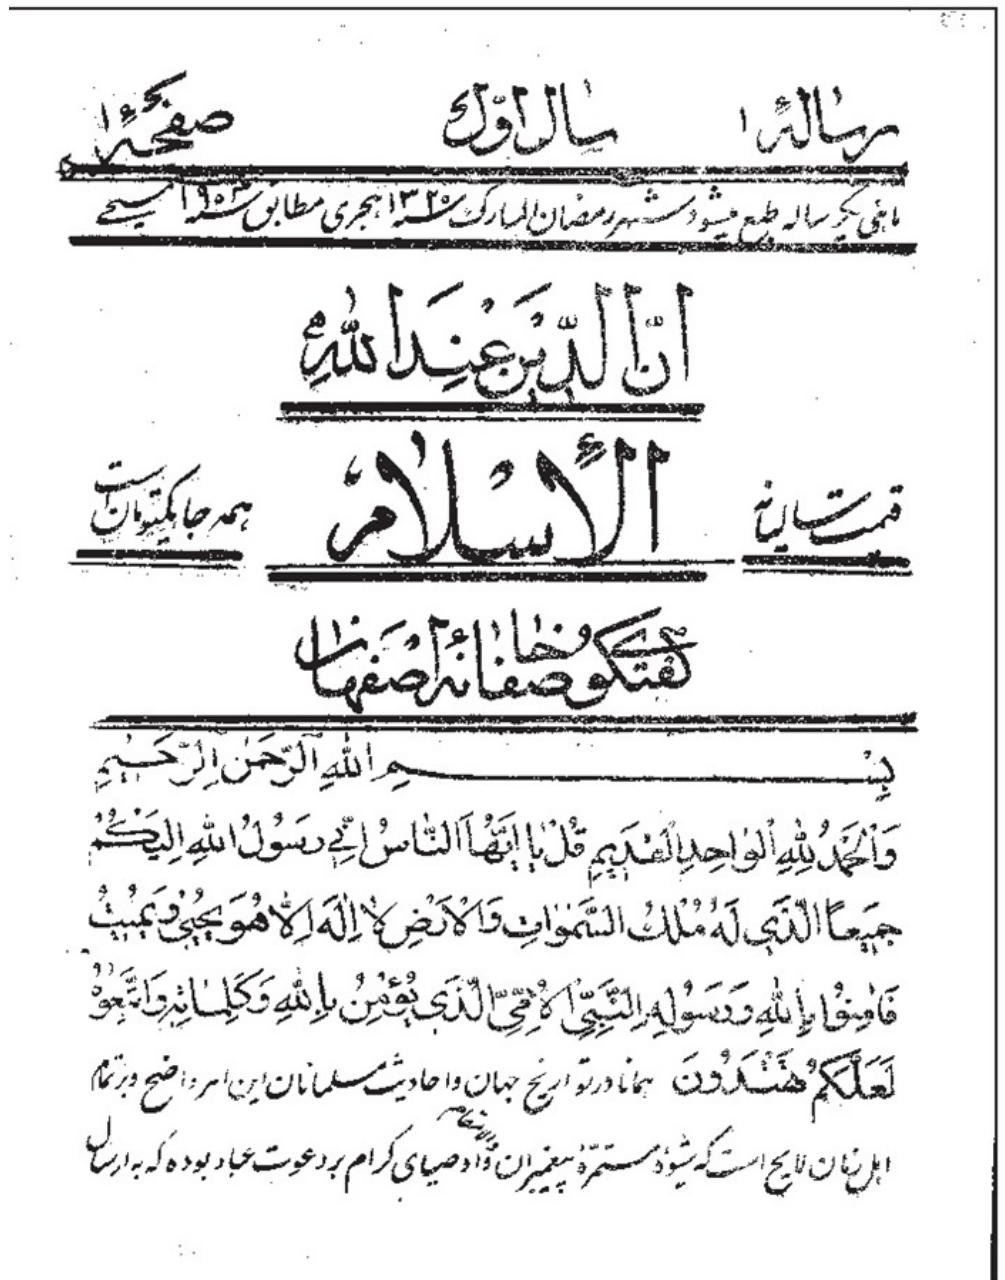 رسالهٔ ۱ سال اوّل صفحهٔ ۱
ماهی یک رساله طبع میشود شهر رمضان المبارک سنه ۱۳۲۰ هجری مطابق سنه ۱۹۰۳ مسیحی
انَّ الدّینَ عِندَ اللهِ
الإسلام
قیمت سالیانه
همه جا یکتومان است
گفتگوی صفاخانهٔ اصفهان
بِسْمِ اللهِ الرَّحمٰنِ الرَّحیمِ
وَالْحَمْدُ لِلّٰهِ الْواحِدِ الْقَدیمِ قُلْ یا اَیُّهَا النّاسُ اِنّی رَسُولُ اللهِ اِلَیْکُمْ
جَمیعًا الَّذی لَهُ مُلْکُ السَّمٰواتِ وَالْاَرْضِ لا اِلٰهَ اِلّا هُوَ یُحْیی وَیُمیتُ
فَامِنُوا بِاللهِ وَرَسُولِهِ النَّبِیِّ الْاُمِّیِّ الَّذی یُؤْمِنُ بِاللهِ وَکَلِماتِهِ وَاتَّبِعُوهُ
لَعَلَّکُمْ تَهْتَدُونَ همانا در تواریخ جهان و احادیث مسلمانان این امر واضح و بر تمام
اهل زمان لایح است که شیوهٔ مستمرّهٔ پیغمبران و اوصیای کرام بر دعوت عباد بوده که به ارسال